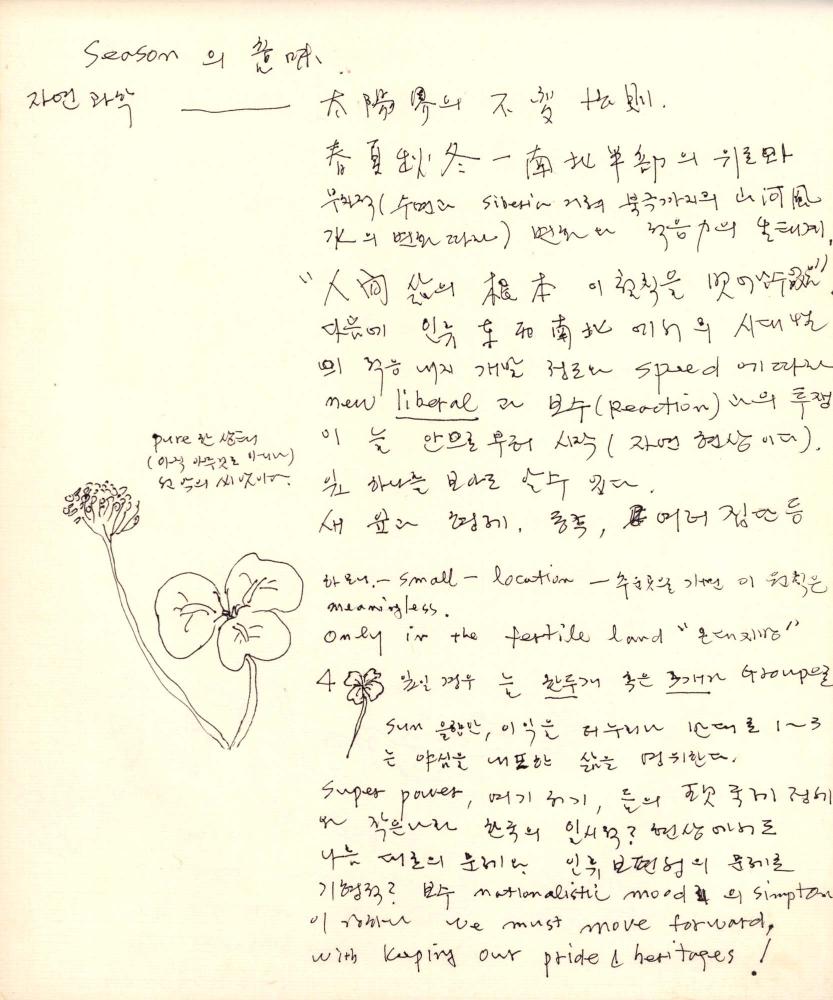 Season 의 意味.
자연 과학 — 太陽界의 不變 法則.
春夏秋冬 — 南北半部의 위로와
무착적 (수면과 Siberia 거쳐 북극까지의 山河風
水의 변화 따라) 변화와 적응力의 生태계,
"人間 삶의 根本 이 원칙을 벗어날수없음"
다음에 인류 東西南北 에서의 시대별
의 적응 내지 개발 정도와 speed 에 따라
new liberal 과 보수 (Reaction) 와의 투쟁
이 늘 안으로 부터 시작 (자연 현상 이다).
잎 하나를 보아도 알수 있다.
새 잎과 형제, 동족, 여러 집단 등
pure 한 상태
(아직 아무것도 아니다)
씨앗이다.
하모니. — small — location — 추운곳을 가면 이 원칙은
meaningless.
Only in the fertile land "온대지방"
4 잎일 경우 늘 한두개 혹은 3개가 Group을
Sun 을 향한, 이익을 더 누리나 반대로 1~3
는 야심을 내포한 삶을 영위한다.
Super power, 여기 저기, 들의 국제 정세
와 작은나라 한국의 현상에서도
나는 대로의 문제와 인류 보편성의 문제로
기형적? 보수 nationalistic mood 의 Simptom
이 we must move forward,
with keeping our pride & heritages!